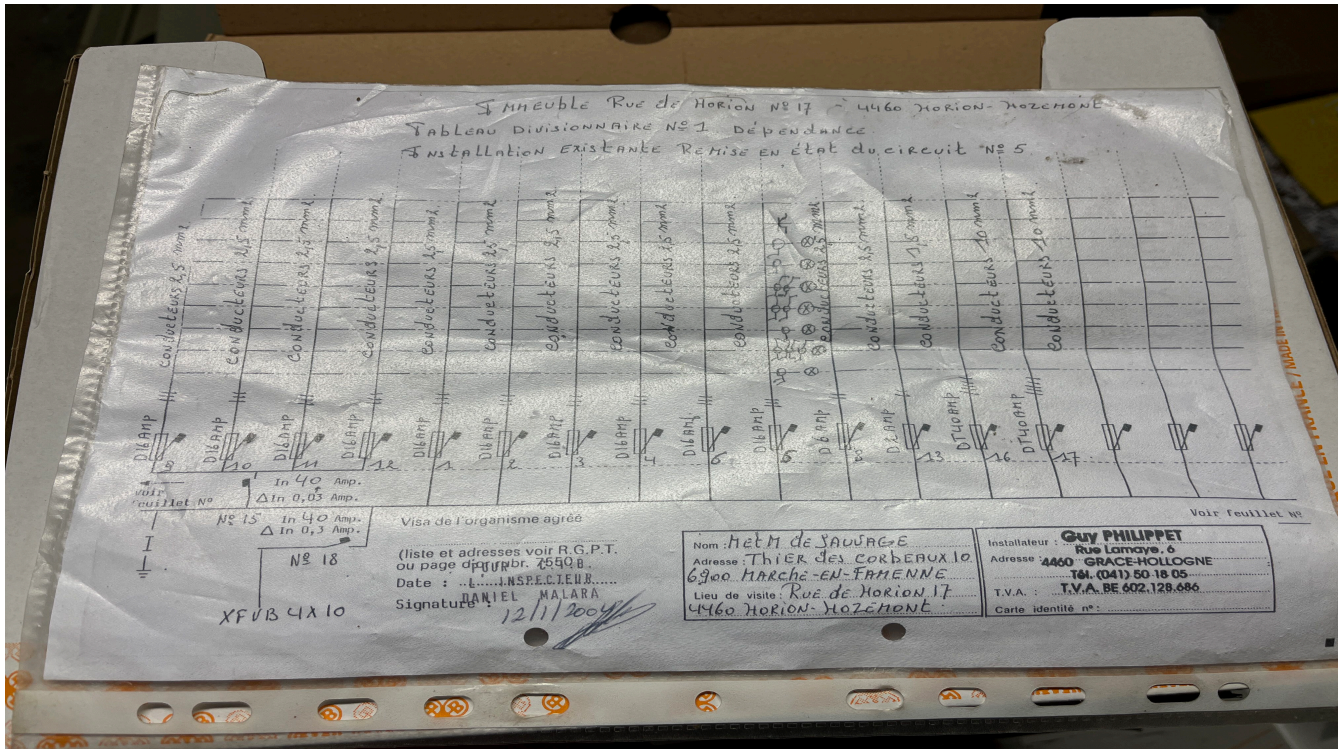 IMMEUBLE RUE de HORION Nº 17 - 4460 HORION-HOZEMONT
TABLEAU DIVISIONNAIRE Nº 1 DÉPENDANCE
INSTALLATION EXISTANTE REMISE EN ÉTAT du CIRCUIT Nº 5
CONDUCTEURS 2,5 mm2
CONDUCTEURS 2,5 mm2
CONDUCTEURS 2,5 mm2
CONDUCTEURS 2,5 mm2
CONDUCTEURS 2,5 mm2
CONDUCTEURS 2,5 mm2
CONDUCTEURS 2,5 mm2
CONDUCTEURS 2,5 mm2
CONDUCTEURS 2,5 mm2
CONDUCTEURS 2,5 mm2
CONDUCTEURS 2,5 mm2
CONDUCTEURS 2,5 mm2
CONDUCTEURS 1,5 mm2
CONDUCTEURS 10 mm2
CONDUCTEURS 10 mm2
D16AMP D16AMP D16AMP D16AMP D16AMP D16AMP D16AMP D16AMP D16AMP D16AMP D16AMP D6AMP DT40AMP DT40AMP
9 10 11 12 1 2 3 4 6 13 16 17
voir feuillet Nº
In 40 Amp.
Δ In 0,03 Amp.
Nº 15 In 40 Amp.
Δ In 0,3 Amp.
Nº 18
XFVB 4X10
Voir feuillet Nº
Visa de l'organisme agréé
(liste et adresses voir R.G.P.T.
Date : L'INSPECTEUR
DANIEL MALARA
Signature :
Nom : M et M de SAUVAGE
Adresse : THIER des CORBEAUX 10
6900 MARCHE-EN-FAMENNE
Lieu de visite : RUE de HORION 17
4460 HORION-HOZEMONT
Installateur : Guy PHILIPPET
Rue Lamaye, 6
Adresse : 4460 GRACE-HOLLOGNE
Tél. (041) 50 18 05
T.V.A. : T.V.A. BE 602.128.686
Carte identité nº :